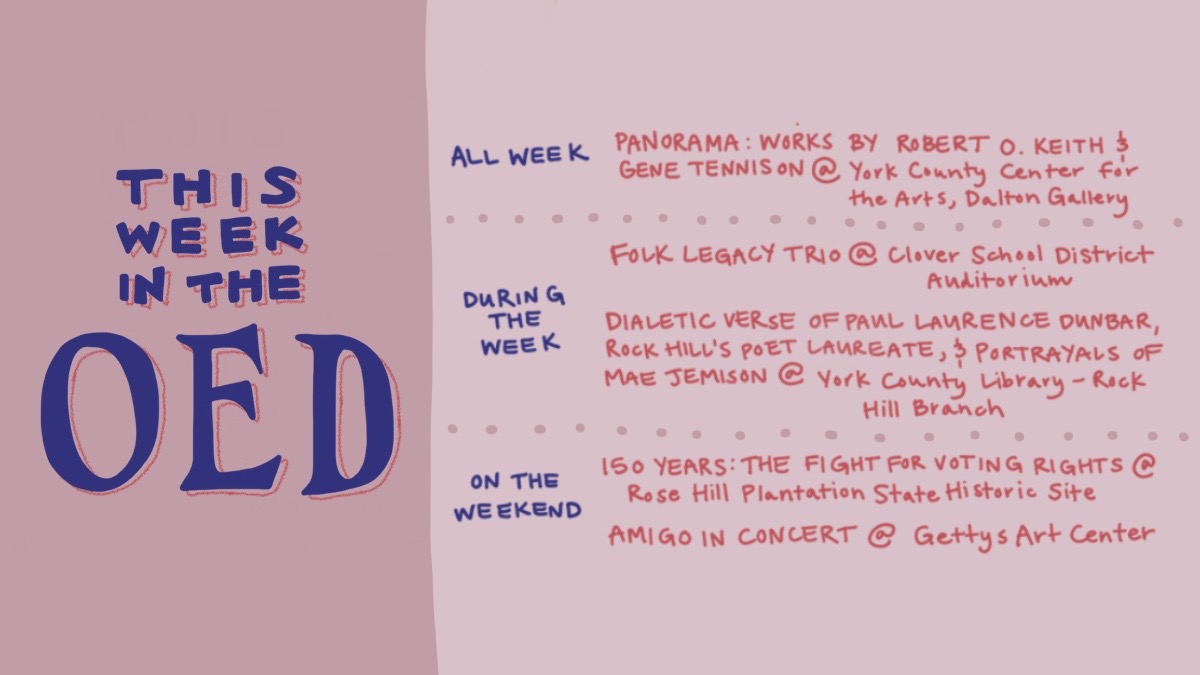 THIS
WEEK
IN THE
OED
ALL WEEK
PANORAMA: WORKS BY ROBERT O. KEITH &
GENE TENNISON @ York County Center for
the Arts, Dalton Gallery
DURING
THE
WEEK
FOLK LEGACY TRIO @ Clover School District
Auditorium
DIALETIC VERSE OF PAUL LAURENCE DUNBAR,
ROCK HILL'S POET LAUREATE, & PORTRAYALS OF
MAE JEMISON @ York County Library - Rock
Hill Branch
ON THE
WEEKEND
150 YEARS: THE FIGHT FOR VOTING RIGHTS @
Rose Hill Plantation State Historic Site
AMIGO IN CONCERT @ Gettys Art Center